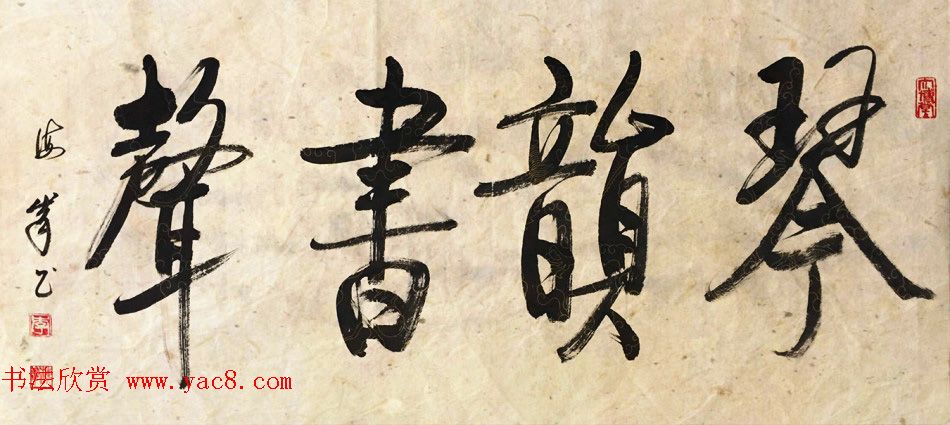 琴韻書聲
海峯
书法欣赏 www.yac8.com